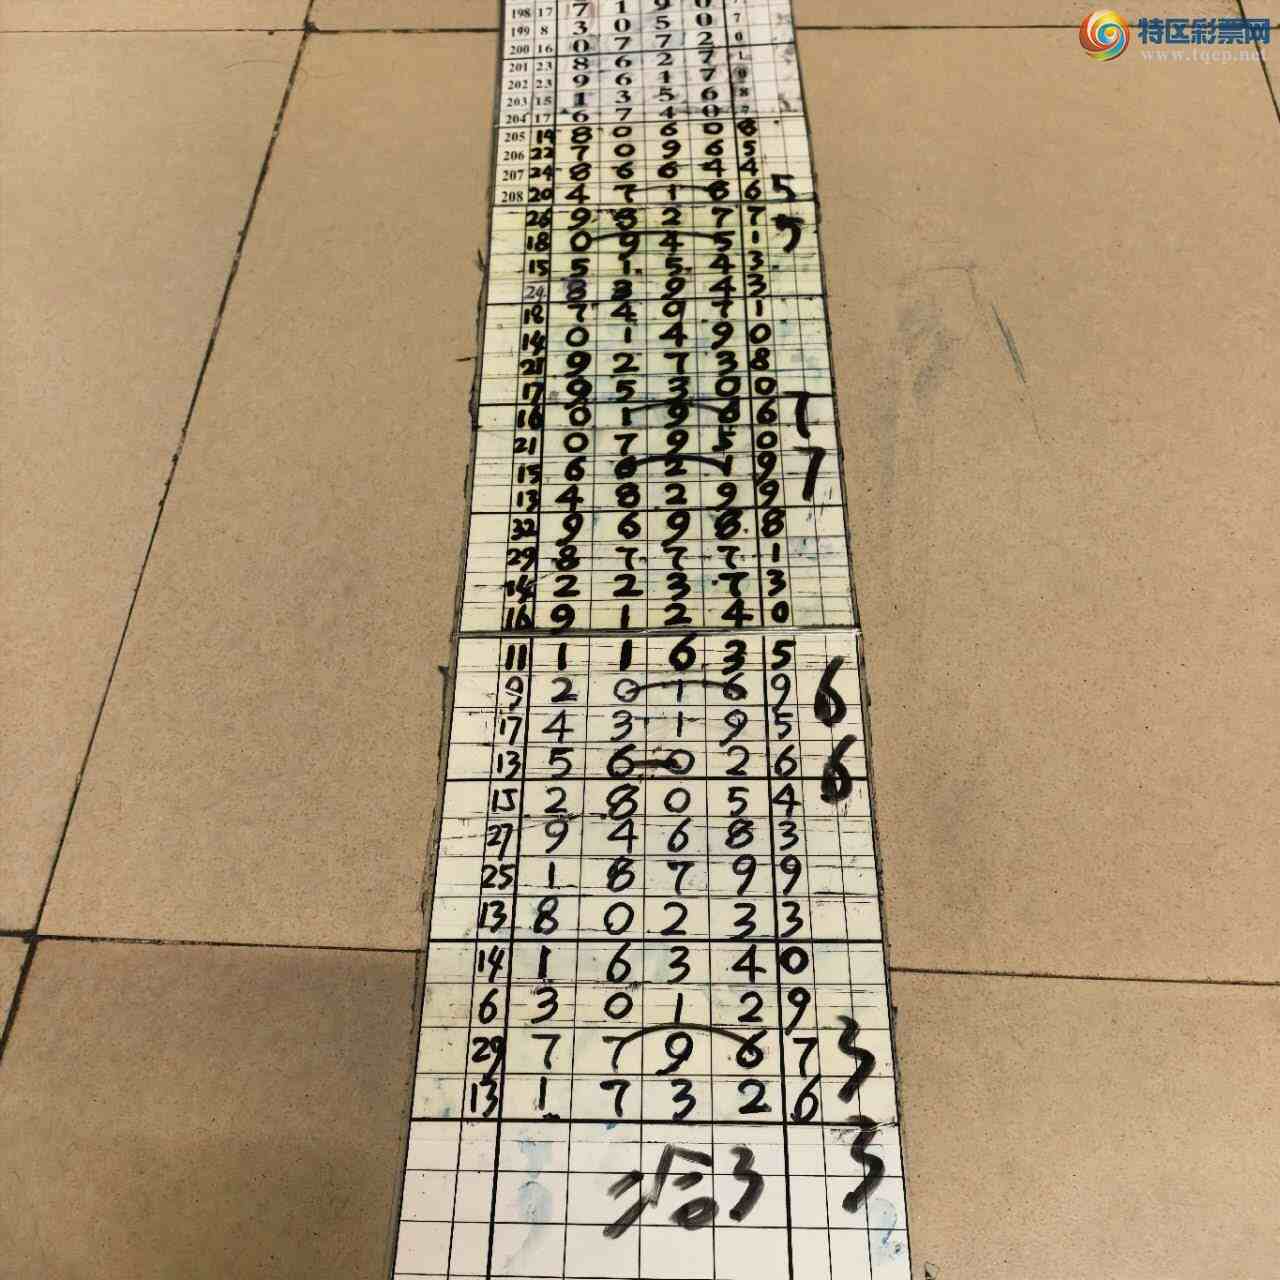 特区彩票网
www.tqcp.net
198 17 7 1 9 0
199 8 3 0 5 0 7
200 16 0 7 7 2 0
201 23 8 6 2 7 1
202 23 9 6 1 7 0
203 15 1 3 5 6 8
204 17 6 7 4 0
205 14 8 0 6 0 6
206 22 7 0 9 6 5
207 24 8 6 6 4 4
208 20 4 7 1 8 6 5
26 9 8 2 7 7
18 0 9 4 5 1 5
15 5 1 5 4 3
24 8 3 9 4 3
18 7 4 0 7 1
14 0 1 4 9 0
21 9 2 7 3 8
17 9 5 3 0 0
16 0 1 9 6 6 7
21 0 7 9 5 0
15 6 6 2 1 9 7
13 4 8 2 9 9
32 9 6 9 8 8
29 8 7 7 7 1
14 2 2 3 7 3
16 9 1 2 4 0
11 1 1 6 3 5
9 2 0 1 6 9 6
17 4 3 1 9 5
13 5 6 0 2 6 6
15 2 8 0 5 4
27 9 4 6 8 3
25 1 8 7 9 9
13 8 0 2 3 3
14 1 6 3 4 0
6 3 0 1 2 9
29 7 7 9 6 7 3
13 1 7 3 2 6
3 3